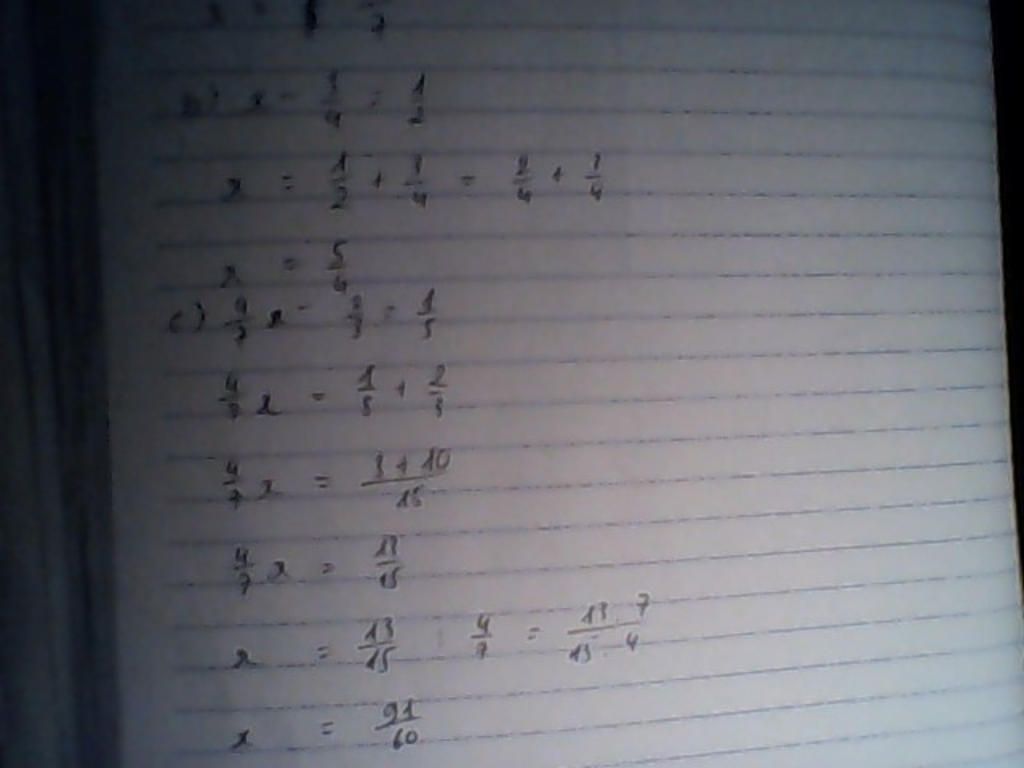 b) x - 3/4 = 1/2
x = 1/2 + 3/4 = 2/4 + 3/4
x = 5/4
c) 4/7 x - 2/3 = 1/5
4/7 x = 1/5 + 2/3
4/7 x = 3 + 10 / 15
4/7 x = 13/15
x = 13/15 : 4/7 = 13 . 7 / 15 . 4
x = 91/60